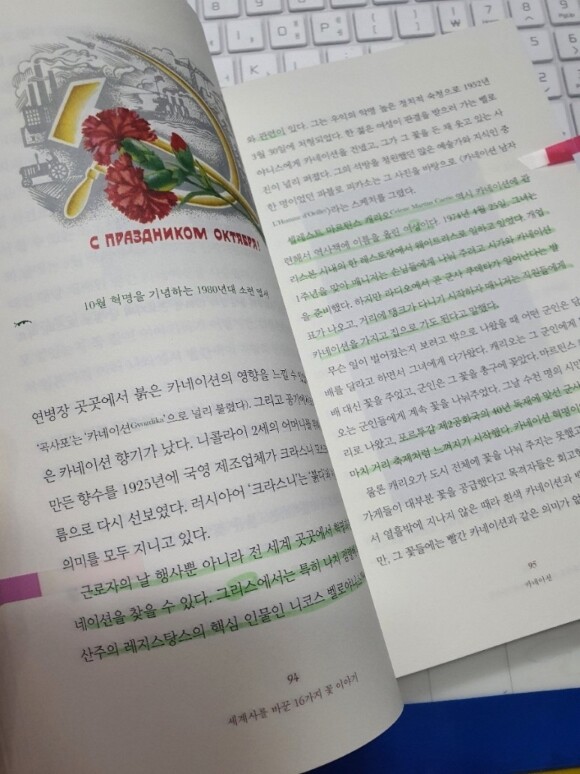 С ПРАЗДНИКОМ ОКТЯБРЯ!
10월 혁명을 기념하는 1980년대 소련 엽서
연병장 곳곳에서 붉은 카네이션의 영향을 느낄 수
'곡사포'는 '카네이션Gvozdika'으로 널리 불렸다). 그리고 공기에서
은 카네이션 향기가 났다. 니콜라이 2세의 어머니를
만든 향수를 1925년에 국영 제조업체가 크라스니
름으로 다시 선보였다. 러시아어 '크라스니'는 '붉다'
의미를 모두 지니고 있다.
근로자의 날 행사뿐 아니라 전 세계 곳곳에서
네이션을 찾을 수 있다. 그리스에서는 특히 나치
산주의 레지스탕스의 핵심 인물인 니코스 벨로야니스
94
세계사를 바꾼 16가지 꽃 이야기
와 관련이 있다. 그는 우익의 혁명 높은 정치적 숙청으로 1952년
3월 30일에 처형되었다. 한 젊은 여성이 판결을 받으러 가는 벨로
야니스에게 카네이션을 건넸고, 그가 그 꽃을 든 채 웃고 있는 사
진이 널리 퍼졌다. 그의 석방을 청원했던 많은 예술가와 지식인 중
한 명이었던 파블로 피카소는 그 사진을 바탕으로 〈카네이션 남자
L'Homme à l'Oeillet〉라는 스케치를 그렸다.
셀레스트 마르틴스 캐리오Celeste Martins Caeiro 역시 카네이션에 관
련해서 역사책에 이름을 올린 여성이다. 1974년 4월 25일, 그녀는
리스본 시내의 한 레스토랑에서 웨이트리스로 일하고 있었다. 개업
1주년을 맞아 매니저는 손님들에게 나눠 주려고 시가와 카네이션
을 준비했다. 하지만 라디오에서 군사 쿠데타가 일어난다는 발
표가 나오고, 거리에 탱크가 다니기 시작하자 매니저는 직원들에게
카네이션을 가지고 집으로 가도 된다고 말했다.
무슨 일이 벌어졌는지 보려고 밖으로 나왔을 때 어떤 군인은 담
배를 달라고 하면서 그녀에게 다가왔다. 캐리오는 그 군인에게
배 대신 꽃을 주었고, 군인은 그 꽃을 총구에 꽂았다. 마르틴스
오는 군인들에게 계속 꽃을 나눠주었다. 그날 수천 명의 시민
리로 나왔고, 포르투갈 제2공화국의 40년 독재에 맞선 군사
마치 거리 축제처럼 느껴지기 시작했다. 카네이션 혁명이
물론 캐리오가 도시 전체에 꽃을 나눠 주지는 못했고
가게들이 대부분 꽃을 공급했다고 목격자들은 회고한
서 열흘밖에 지나지 않은 때라 흰색 카네이션과
만, 그 꽃들에는 빨간 카네이션과 같은 의미가
95
카네이션